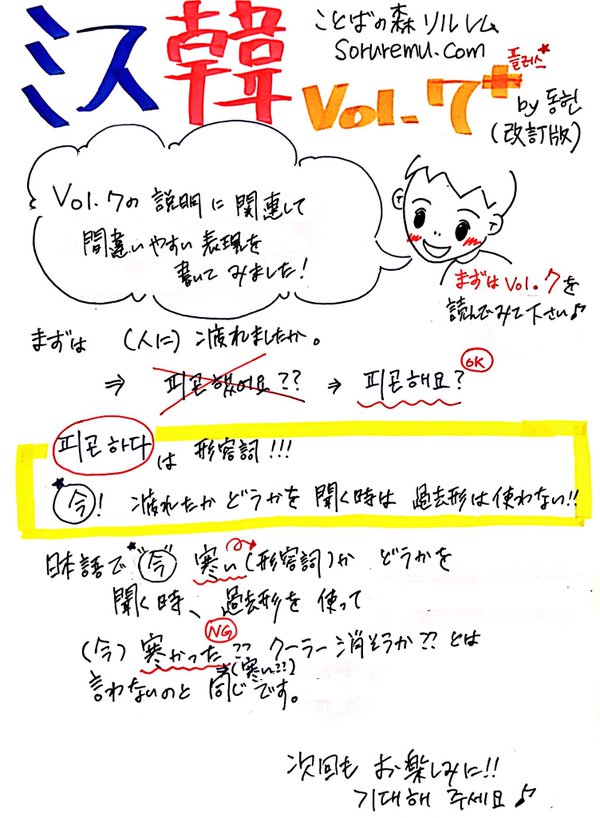 ミス韓
ことばの森ソルレム
Soruremu.com
Vol.7+
플러스
by 동현
(改訂版)
Vol.7の説明に関連して
間違いやすい表現を
書いてみました!
まずはVol.7を
読んでみて下さい♪
まずは (人に) 疲れましたか。
⇒ 피곤했어요?? ⇒ 피곤해요?
OK
피곤하다は 形容詞!!!
今! 疲れたか どうかを 聞く時は 過去形は使わない!!
日本語で "今" 寒い(形容詞)か どうかを
聞く時、過去形を使って
NG
(今) 寒かった?? クーラー消そうか?? とは
→(寒い??)
言わないのと 同じです。
次回も お楽しみに!!
기대해 주세요♪